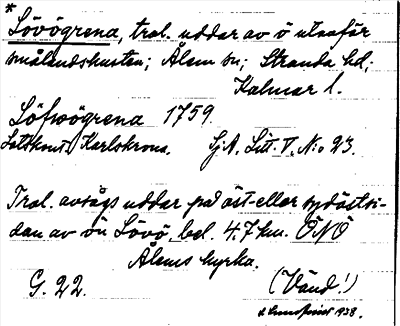 *
Lövögrena, trol. uddar av ö utanför
smålandskusten; Ålem sn; Stranda hd;
Kalmar l.
Löfwögrena 1759.
Lotsknt. Karlskrona. Sj.A. Litt. V. No 23.
Trol. avsågs uddar på öst- eller sydöstsi-
dan av ön Lövö, bel. 4,7 km. ÖNÖ
Ålems kyrka.
G. 22. (Vänd!)
1938.